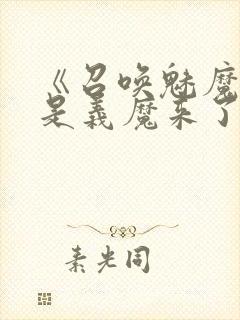 《召唤魅魔
是义魔来了
素光同